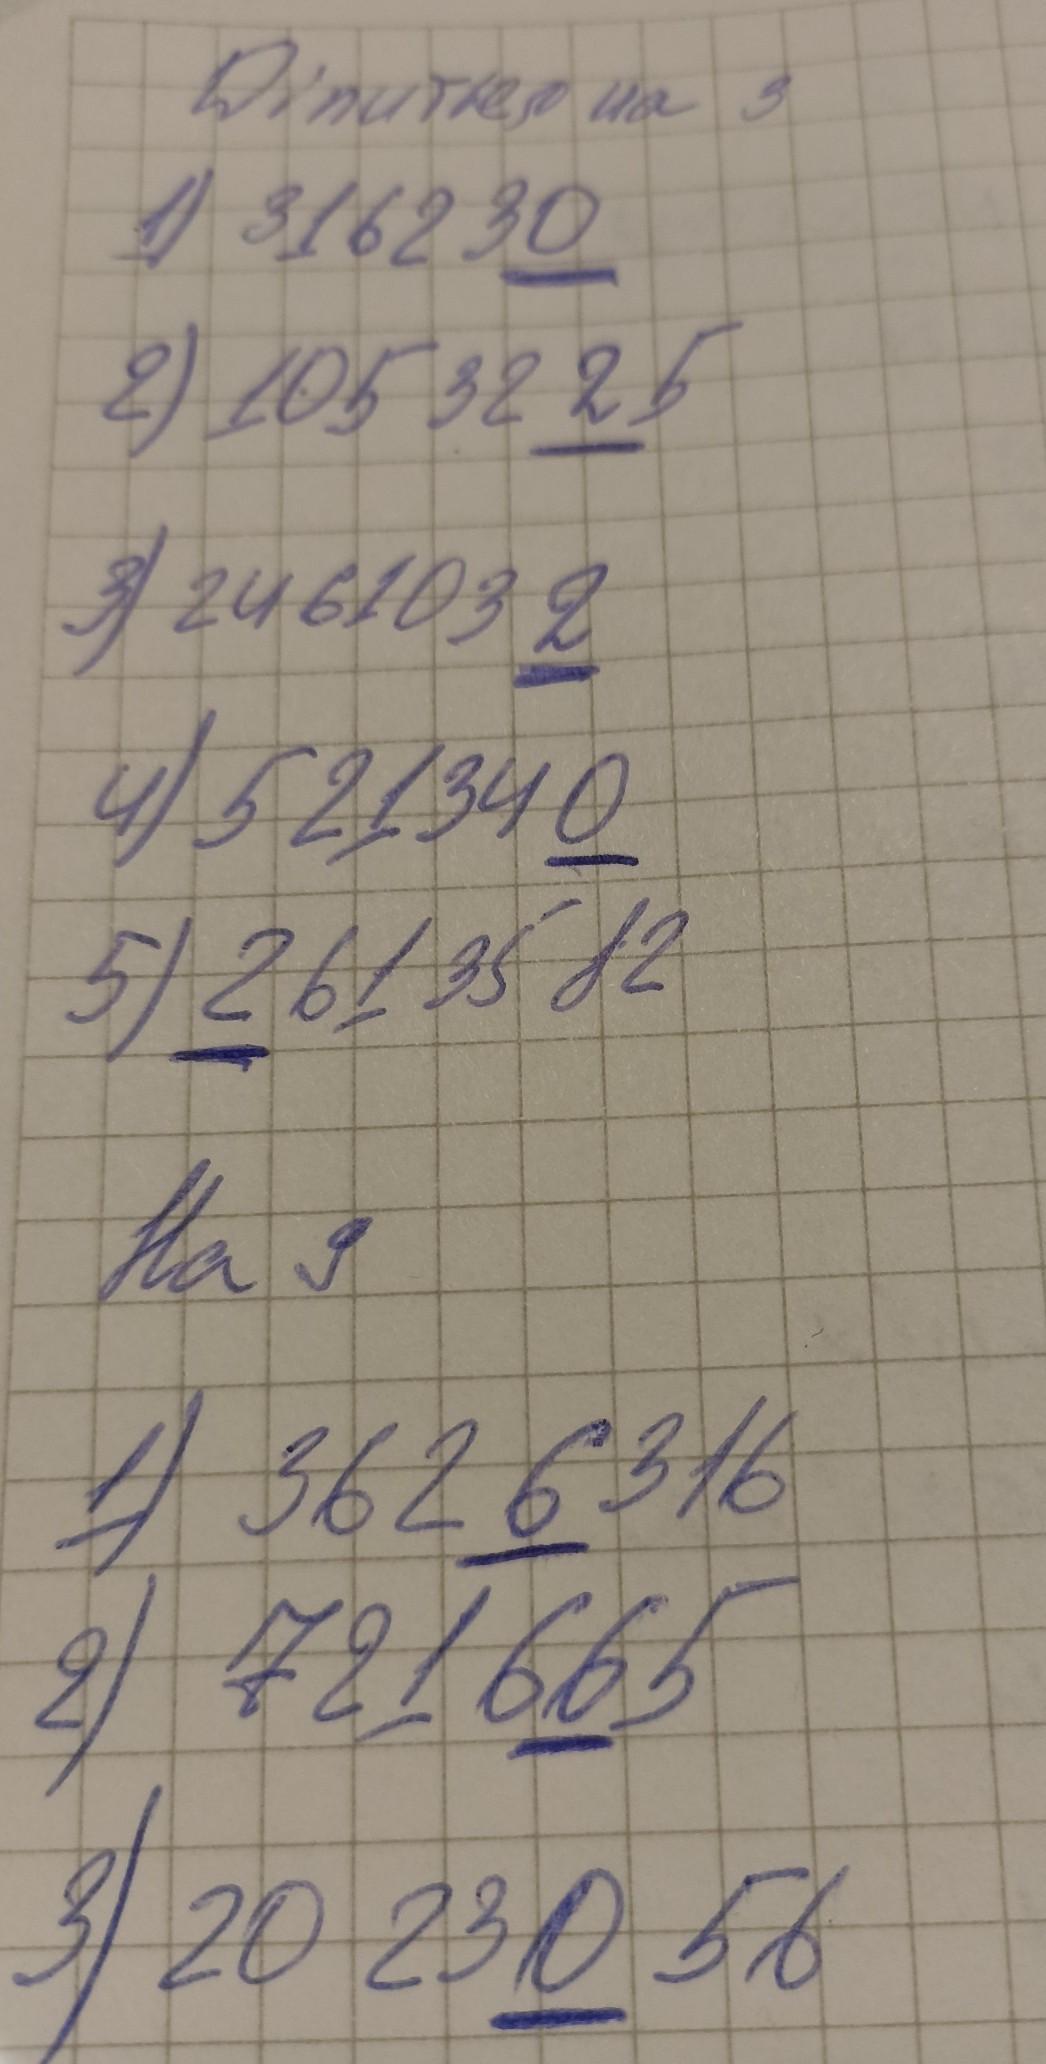 Ділиться на 3
1) 316230
2) 105 32 2 5
3) 2461032
4) 521340
5) 26135 12
На 9
1) 3626316
2) 721665
3) 20 230 56